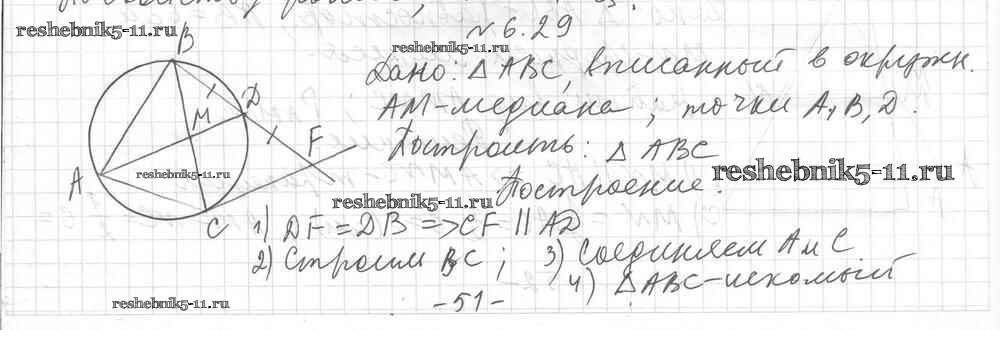 reshebnik5-11.ru
№ 6.29
reshebnik5-11.ru
Дано: △ABC, вписанный в окружн.
AM-медиана; точки A, B, D.
Построить: △ABC
reshebnik5-11.ru
Построение:
reshebnik5-11.ru
reshebnik5-11.ru
B
D
M
F
A
C
1) DF = DB => CF || AD
2) Строим BC; 3) Соединяем A и C
4) △ABC-искомый
reshebnik5-11.ru
-51-